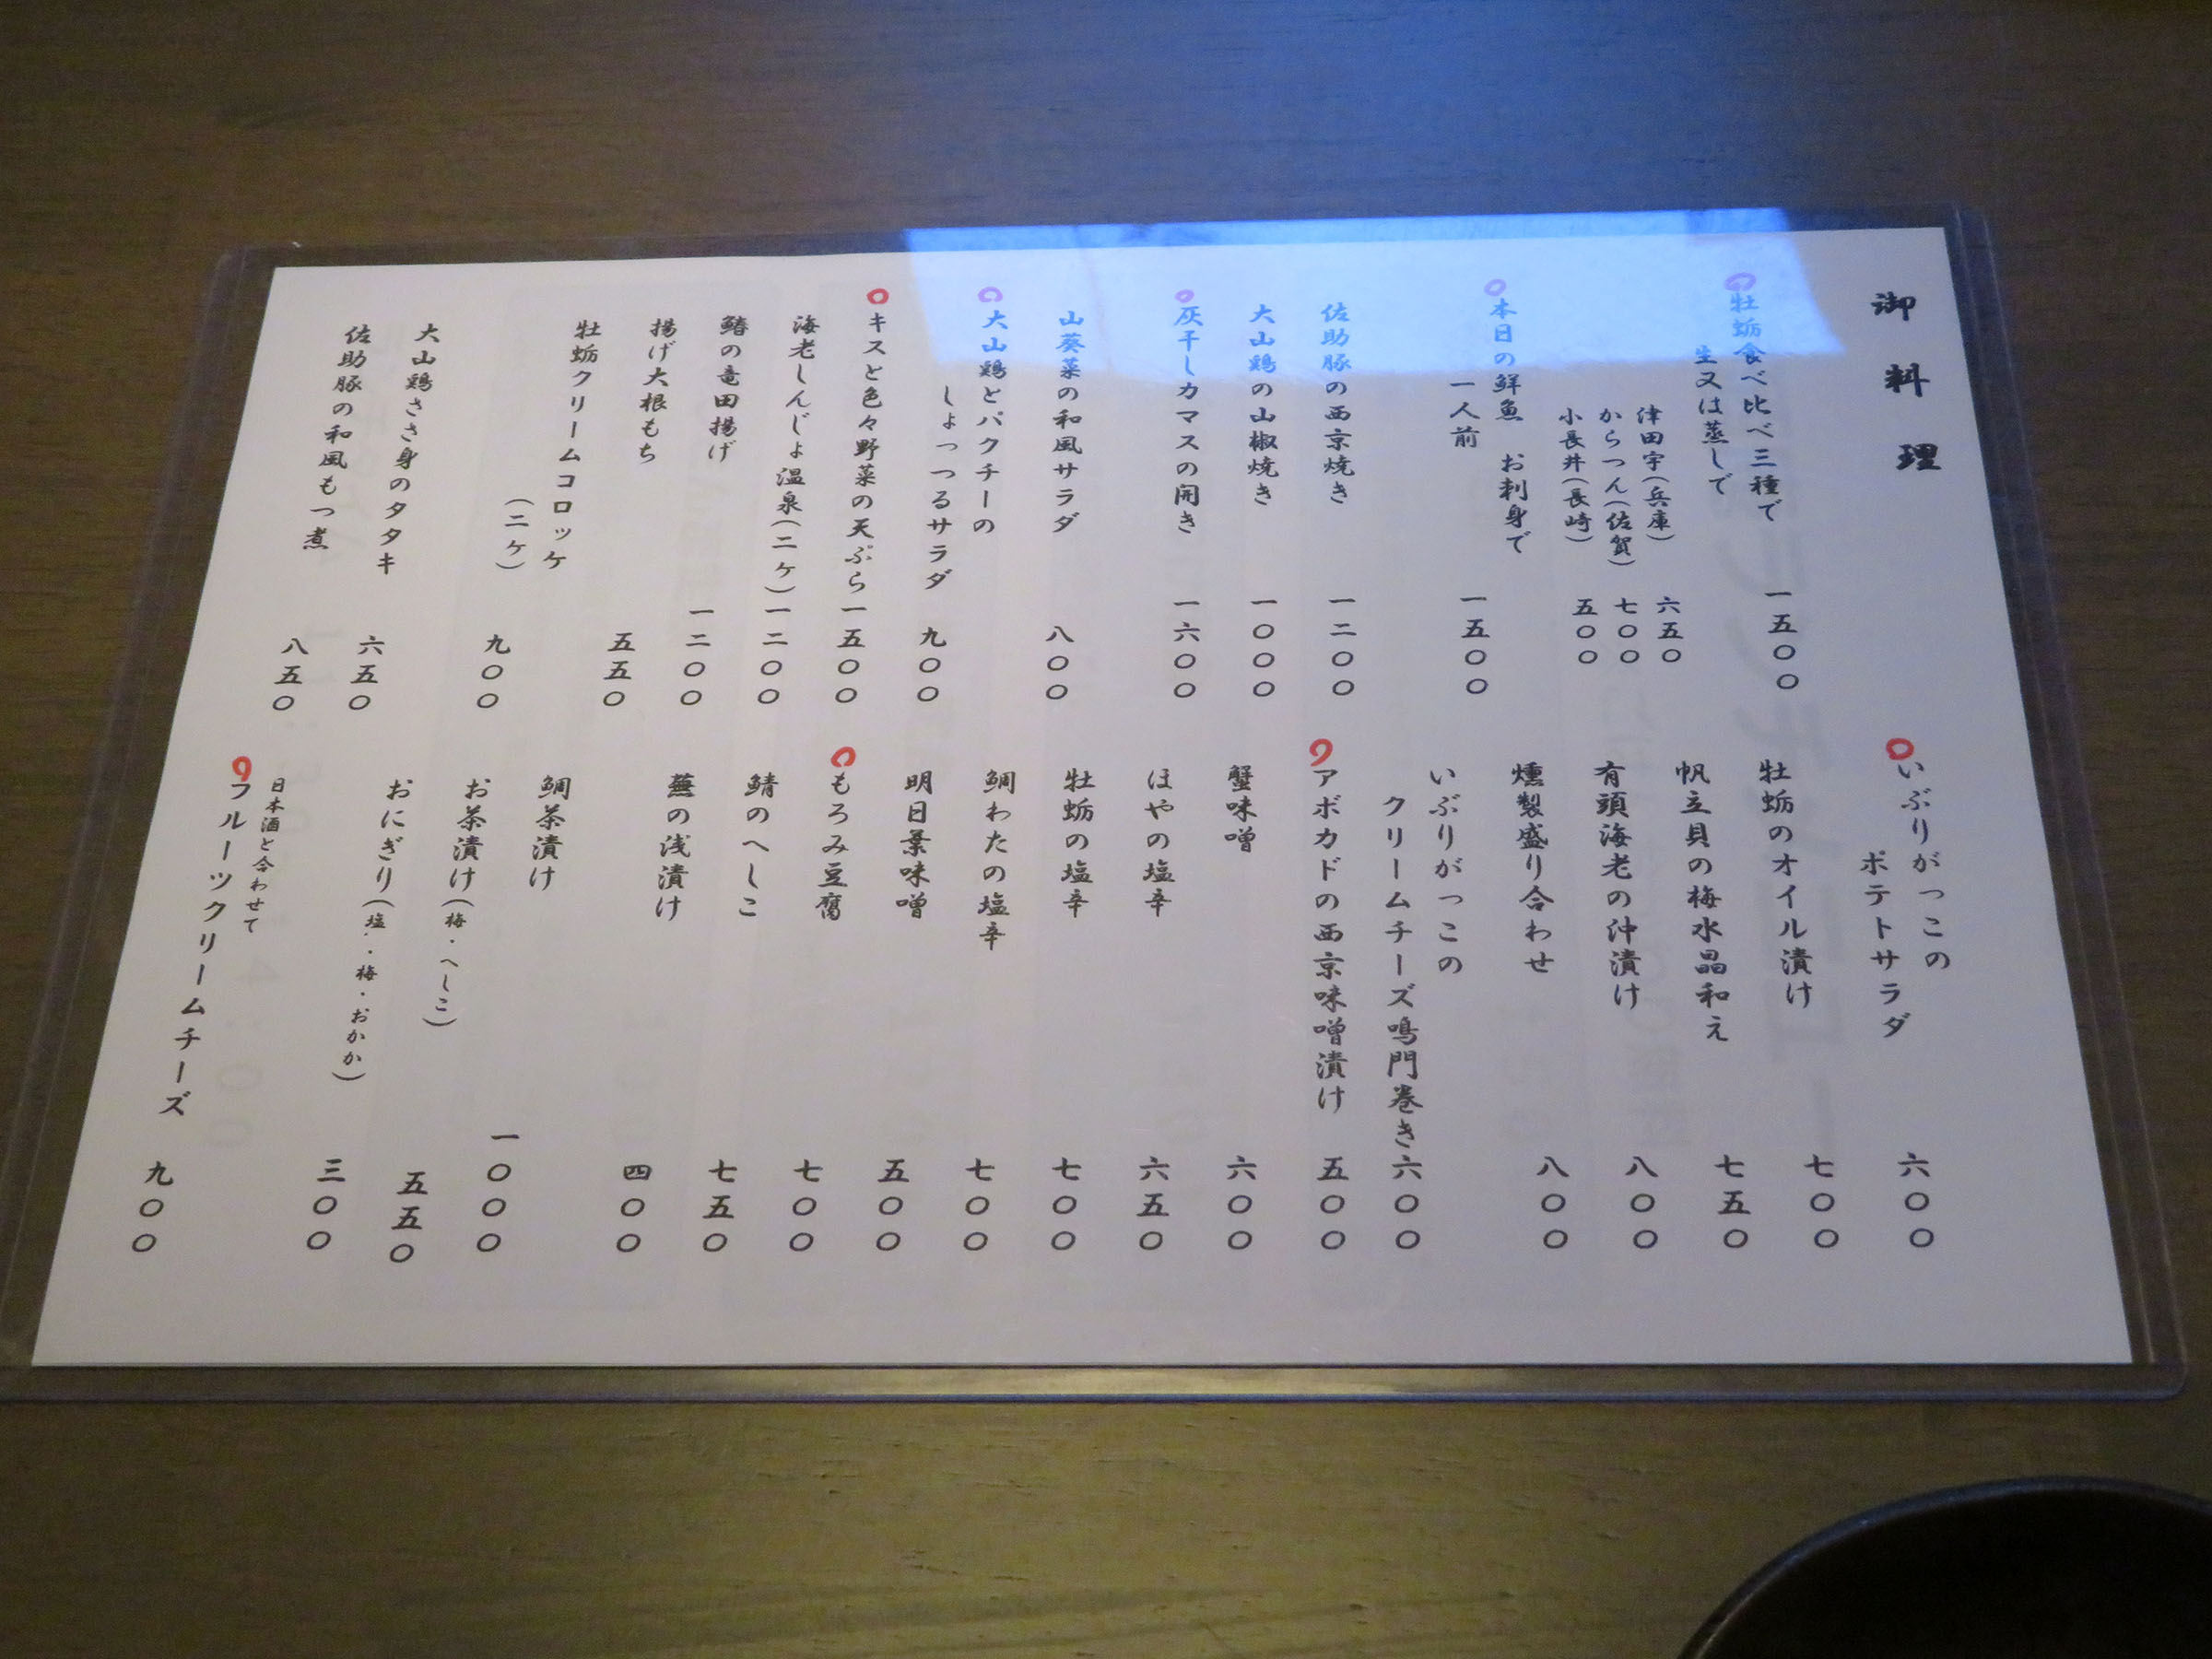 御料理
牡蛎食べ比べ三種で 一五〇〇
生又は蒸しで
津田宇(兵庫) 六五〇
からつん(佐賀) 七〇〇
小長井(長崎) 五〇〇
本日の鮮魚 お刺身で
一人前 一五〇〇
佐助豚の西京焼き 一二〇〇
大山鶏の山椒焼き 一〇〇〇
灰干しカマスの開き 一六〇〇
山葵菜の和風サラダ 八〇〇
大山鶏とパクチーの
しょっつるサラダ 九〇〇
キスと色々野菜の天ぷら 一五〇〇
海老しんじょ温泉(二ケ) 一二〇〇
鰆の竜田揚げ 一二〇〇
揚げ大根もち 五五〇
牡蛎クリームコロッケ
(二ケ) 九〇〇
大山鶏ささ身のタタキ 六五〇
佐助豚の和風もつ煮 八五〇
いぶりがっこの
ポテトサラダ 六〇〇
牡蛎のオイル漬け 七〇〇
帆立貝の梅水晶和え 七五〇
有頭海老の沖漬け 八〇〇
燻製盛り合わせ 八〇〇
いぶりがっこの
クリームチーズ鳴門巻き 六〇〇
アボカドの西京味噌漬け 五〇〇
蟹味噌 六〇〇
ほやの塩辛 六五〇
牡蛎の塩辛 七〇〇
鯛わたの塩辛 七〇〇
明日葉味噌 五〇〇
もろみ豆腐 七〇〇
鯖のへしこ 七五〇
蕪の浅漬け 四〇〇
鯛茶漬け 一〇〇〇
お茶漬け(梅・へしこ) 五五〇
おにぎり(塩・・梅・おかか) 三〇〇
日本酒と合わせて
フルーツクリームチーズ 九〇〇